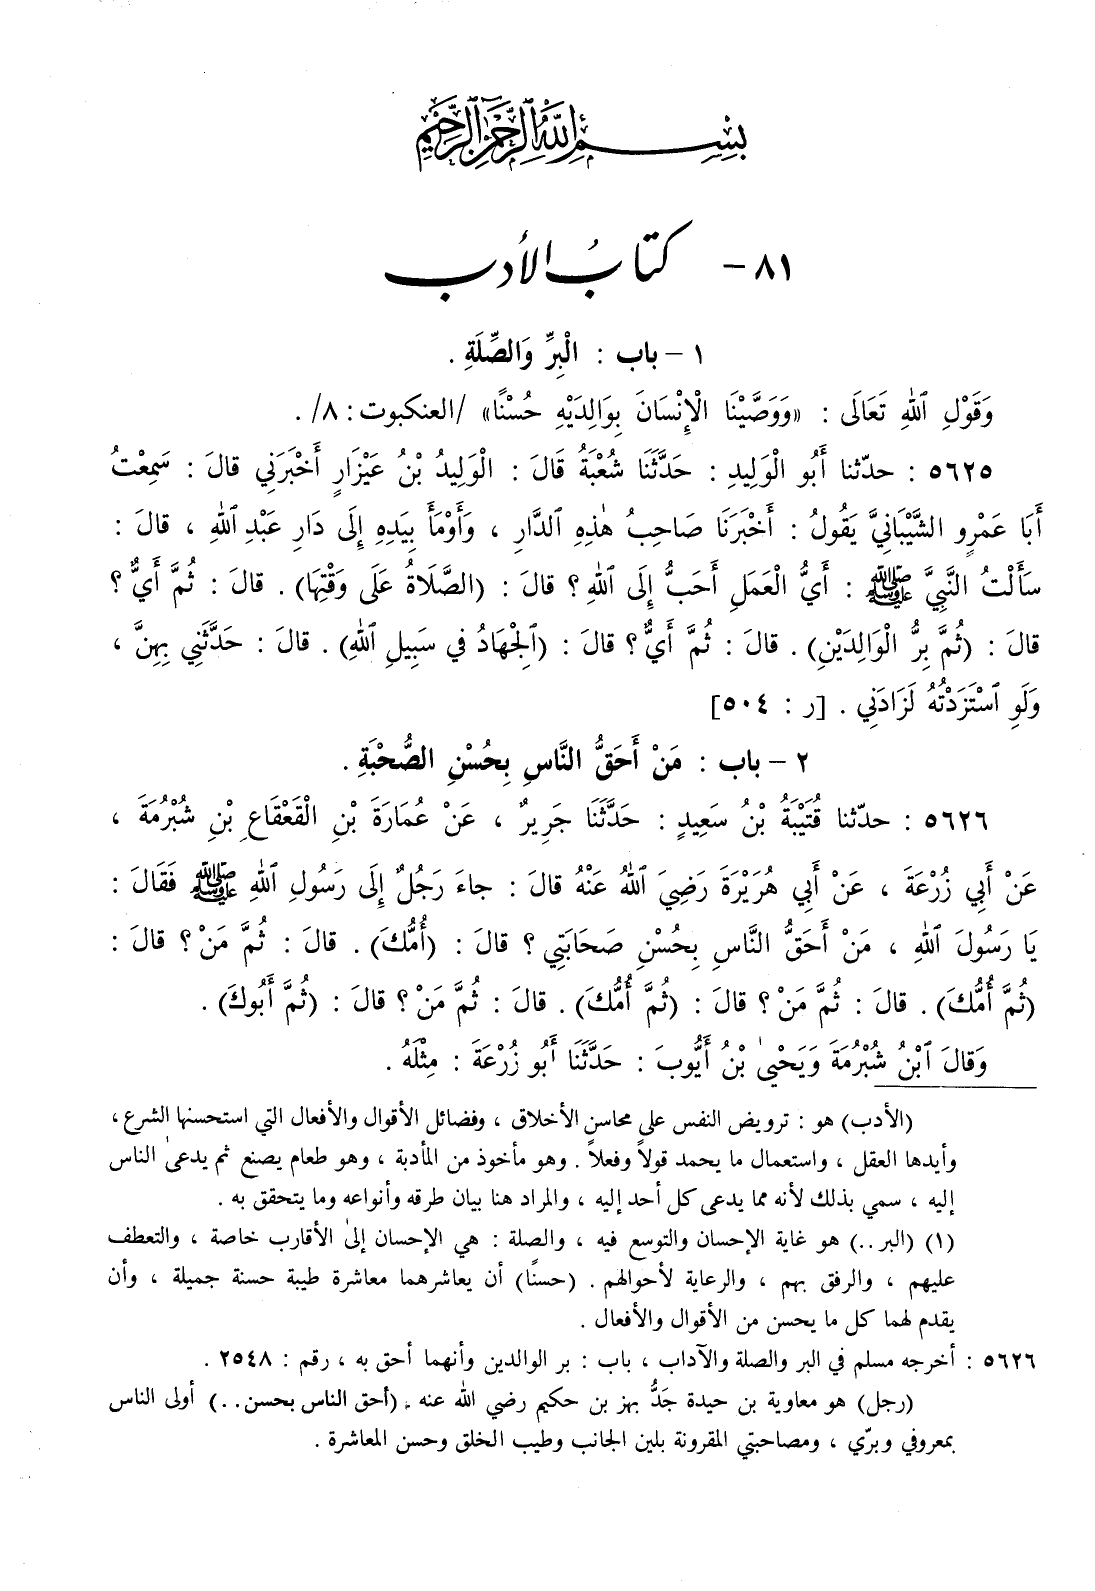 بِسْمِ اللهِ الرَّحْمٰنِ الرَّحِيمِ
٨١ - كتابُ الأدب
١ - باب : الْبِرِّ وَالصِّلَةِ .
وَقَوْلِ ٱللهِ تَعَالَى : «وَوَصَّيْنَا الْإِنْسَانَ بِوَالِدَيْهِ حُسْنًا» /العنكبوت : ٨/ .
٥٦٢٥ : حدّثنا أَبُو الْوَلِيدِ : حَدَّثَنَا شُعْبَةُ قَالَ : الْوَلِيدُ بْنُ عَيْزَارٍ أَخْبَرَنِي قالَ : سَمِعْتُ
أَبَا عَمْرٍو الشَّيْبَانِيَّ يَقُولُ : أَخْبَرَنَا صَاحِبُ هٰذِهِ ٱلدَّارِ ، وَأَوْمَأَ بِيَدِهِ إِلَى دَارِ عَبْدِ ٱللهِ ، قالَ :
سَأَلْتُ النَّبِيَّ ﷺ : أَيُّ الْعَمَلِ أَحَبُّ إِلَى ٱللهِ ؟ قالَ : (الصَّلَاةُ عَلَى وَقْتِهَا) . قالَ : ثُمَّ أَيٌّ ؟
قالَ : (ثُمَّ بِرُّ الْوَالِدَيْنِ) . قالَ : ثُمَّ أَيٌّ ؟ قالَ : (ٱلْجِهَادُ في سَبِيلِ ٱللهِ) . قالَ : حَدَّثَنِي بِهِنَّ ،
وَلَوِ ٱسْتَزَدْتُهُ لَزَادَنِي . [ر : ٥٠٤]
٢ - باب : مَنْ أَحَقُّ النَّاسِ بِحُسْنِ الصُّحْبَةِ .
٥٦٢٦ : حدّثنا قُتَيْبَةُ بْنُ سَعِيدٍ : حَدَّثَنَا جَرِيرٌ ، عَنْ عُمَارَةَ بْنِ الْقَعْقَاعِ بْنِ شُبْرُمَةَ ،
عَنْ أَبِي زُرْعَةَ ، عَنْ أَبِي هُرَيْرَةَ رَضِيَ ٱللهُ عَنْهُ قالَ : جاءَ رَجُلٌ إِلَى رَسُولِ ٱللهِ ﷺ فَقَالَ :
يَا رَسُولَ ٱللهِ ، مَنْ أَحَقُّ النَّاسِ بِحُسْنِ صَحَابَتِي ؟ قالَ : (أُمُّكَ) . قالَ : ثُمَّ مَنْ ؟ قالَ :
(ثُمَّ أُمُّكَ) . قالَ : ثُمَّ مَنْ ؟ قالَ : (ثُمَّ أُمُّكَ) . قالَ : ثُمَّ مَنْ ؟ قالَ : (ثُمَّ أَبُوكَ) .
وَقالَ ٱبْنُ شُبْرُمَةَ وَيَحْيىٰ بْنُ أَيُّوبَ : حَدَّثَنَا أَبُو زُرْعَةَ : مِثْلَهُ .
(الأدب) هو : ترويض النفس على محاسن الأخلاق ، وفضائل الأقوال والأفعال التي استحسنها الشرع ،
وأيدها العقل ، واستعمال ما يحمد قولاً وفعلاً . وهو مأخوذ من المأدبة ، وهو طعام يصنع ثم يدعىٰ الناس
إليه ، سمي بذلك لأنه مما يدعى كل أحد إليه ، والمراد هنا بيان طرقه وأنواعه وما يتحقق به .
(١) (البر ..) هو غاية الإحسان والتوسع فيه ، والصلة : هي الإحسان إلىٰ الأقارب خاصة ، والتعطف
عليهم ، والرفق بهم ، والرعاية لأحوالهم . (حسنًا) أن يعاشرهما معاشرة طيبة حسنة جميلة ، وأن
يقدم لهما كل ما يحسن من الأقوال والأفعال .
٥٦٢٦ : أخرجه مسلم في البر والصلة والآداب ، باب : بر الوالدين وأنهما أحق به ، رقم : ٢٥٤٨ .
(رجل) هو معاوية بن حيدة جَدُّ بهز بن حكيم رضي الله عنه . (أحق الناس بحسن ..) أولى الناس
بمعروفي وبرّي ، ومصاحبتي المقرونة بلين الجانب وطيب الخلق وحسن المعاشرة .